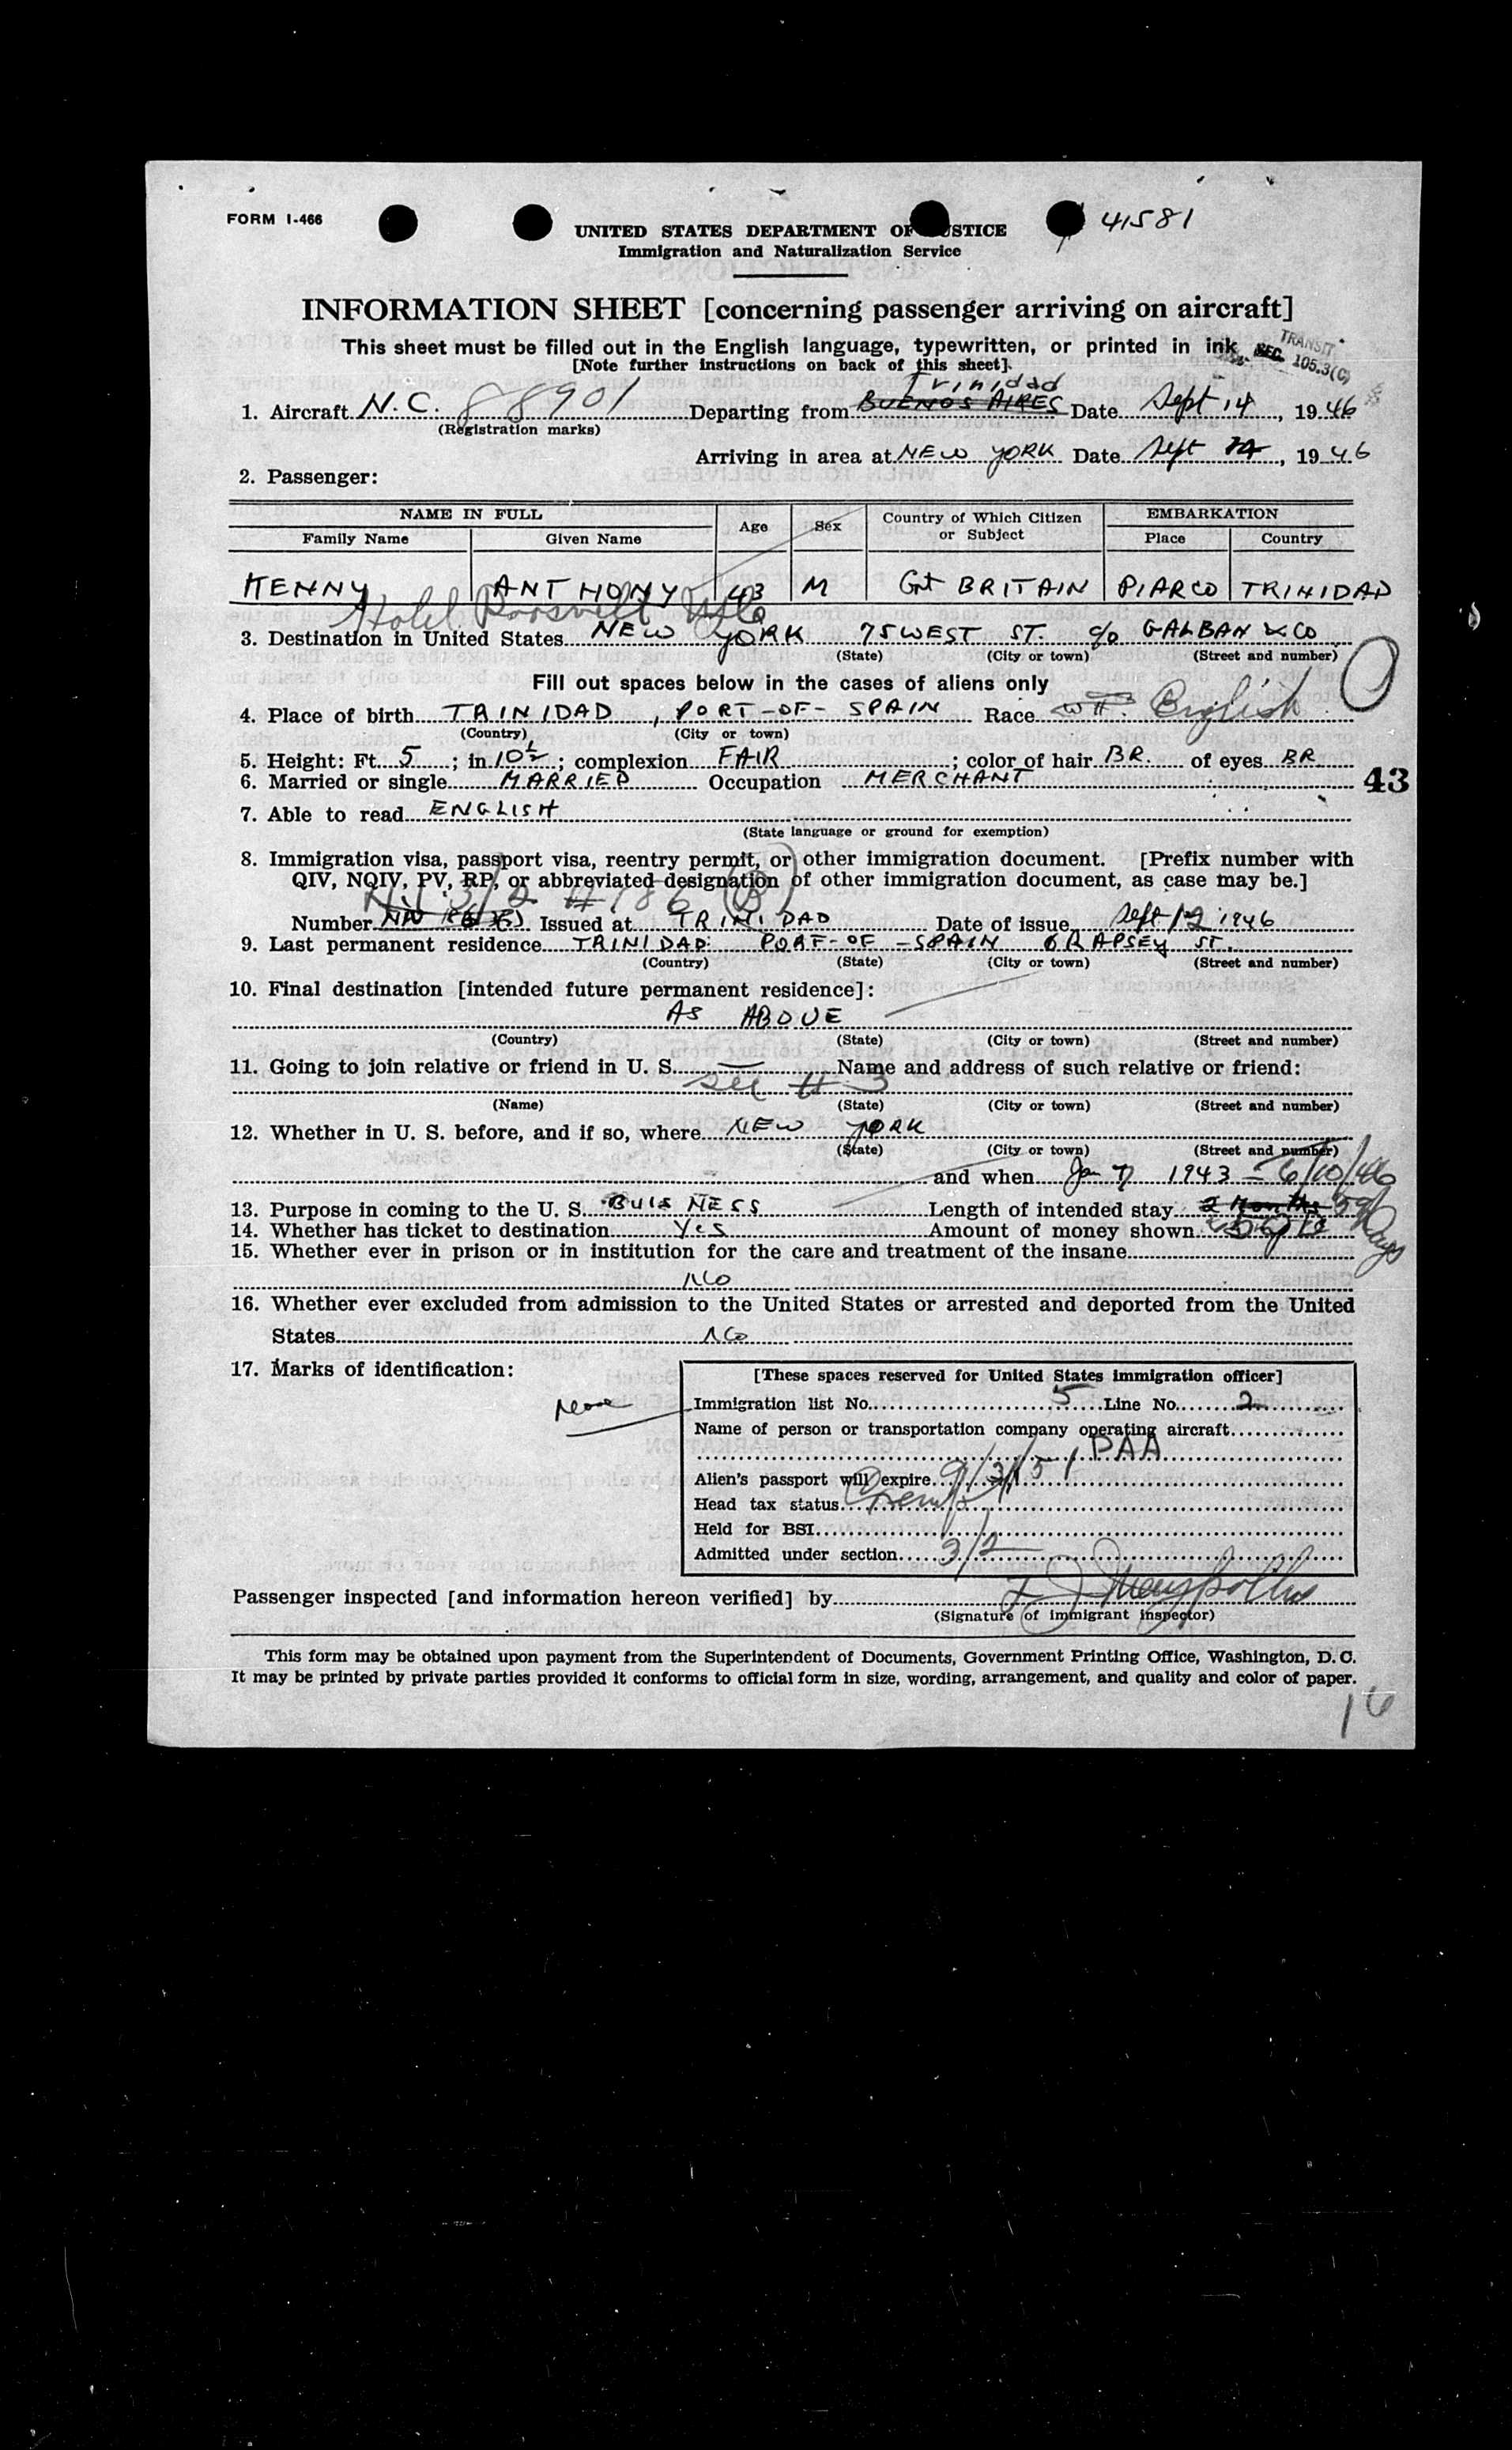 FORM I-466
41581
UNITED STATES DEPARTMENT OF JUSTICE
Immigration and Naturalization Service
INFORMATION SHEET [concerning passenger arriving on aircraft]
This sheet must be filled out in the English language, typewritten, or printed in ink.
TRANSIT
SEC. 105.3(C)
[Note further instructions on back of this sheet].
Trinidad
1. Aircraft N.C. 88901 Departing from BUENOS AIRES Date Sept 14, 1946
(Registration marks)
Arriving in area at NEW YORK Date Sept 14, 1946
2. Passenger:
NAME IN FULL Age Sex Country of Which Citizen or Subject EMBARKATION
Family Name Given Name Place Country
KENNY ANTHONY 43 M Gt BRITAIN PIARCO TRINIDAD
Hotel Roosvelt
3. Destination in United States NEW YORK 75 WEST ST. c/o GALBAN & CO
(State) (City or town) (Street and number)
Fill out spaces below in the cases of aliens only
4. Place of birth TRINIDAD, PORT-OF-SPAIN Race WH. English
(Country) (City or town)
5. Height: Ft. 5; in 10½; complexion FAIR; color of hair BR. of eyes BR
6. Married or single MARRIED Occupation MERCHANT
43
7. Able to read ENGLISH
(State language or ground for exemption)
8. Immigration visa, passport visa, reentry permit, or other immigration document. [Prefix number with
QIV, NQIV, PV, RP, or abbreviated designation of other immigration document, as case may be.]
NIV 3/2 #186 (B)
Number Issued at TRINIDAD Date of issue Sept 12 1946
9. Last permanent residence TRINIDAD PORT-OF-SPAIN 6 RAPSEY ST.
(Country) (State) (City or town) (Street and number)
10. Final destination [intended future permanent residence]:
AS ABOVE
(Country) (State) (City or town) (Street and number)
11. Going to join relative or friend in U. S. — Name and address of such relative or friend:
see #3
(Name) (State) (City or town) (Street and number)
12. Whether in U. S. before, and if so, where NEW YORK
(State) (City or town) (Street and number)
and when Jan 7 1943 – 6/10/46
13. Purpose in coming to the U. S. BUISNESS Length of intended stay 2 Months 59 Days
14. Whether has ticket to destination Yes Amount of money shown
15. Whether ever in prison or in institution for the care and treatment of the insane
No
16. Whether ever excluded from admission to the United States or arrested and deported from the United
States No
17. Marks of identification:
None
[These spaces reserved for United States immigration officer]
Immigration list No. 5 Line No. 2
Name of person or transportation company operating aircraft
PAA
Alien's passport will expire 9/3/51
Head tax status Exempt
Held for BSI
Admitted under section 3/2
Passenger inspected [and information hereon verified] by
(Signature of immigrant inspector)
This form may be obtained upon payment from the Superintendent of Documents, Government Printing Office, Washington, D. C.
It may be printed by private parties provided it conforms to official form in size, wording, arrangement, and quality and color of paper.
16